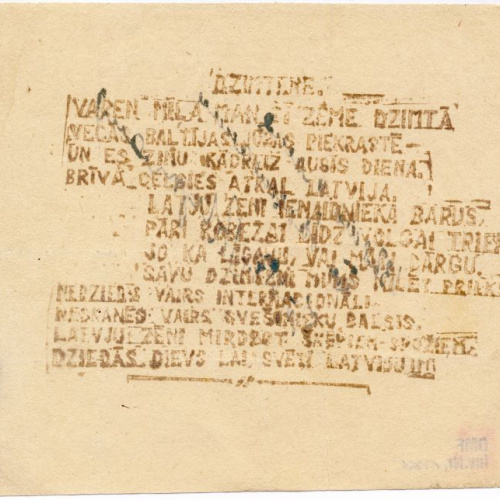 "DZIMTENE."
VAREN MĪĻA MAN ŠĪ ZEME DZIMTĀ
VECĀS BALTIJAS JŪRAS PIEKRASTĒ-
UN ES ZINU KĀDREIZ AUSĪS DIENA.
BRĪVĀ CELSIES ATKAL LATVIJA.
LATVJU ZĒNI IENAIDNIEKA BARUS,
PĀRI ROBEŽAI LĪDZ VOLGAI TRIEK
JO KĀ LĪGAVU, VAI MĀTI DĀRGU,
SAVU DZIMTENI MUMS MĪLĒT PRIEKS
NEDZIEDĀS VAIRS INTERNACIONĀLI-
NESKANĒS VAIRS SVEŠINIEKU BALSIS.
LATVJU ZĒNI MIRDZOT ŠĶĒPIEM SPOŽIEM
DZIEDĀS, DIEVS LAI SVĒTĪ LATVIJU!!!